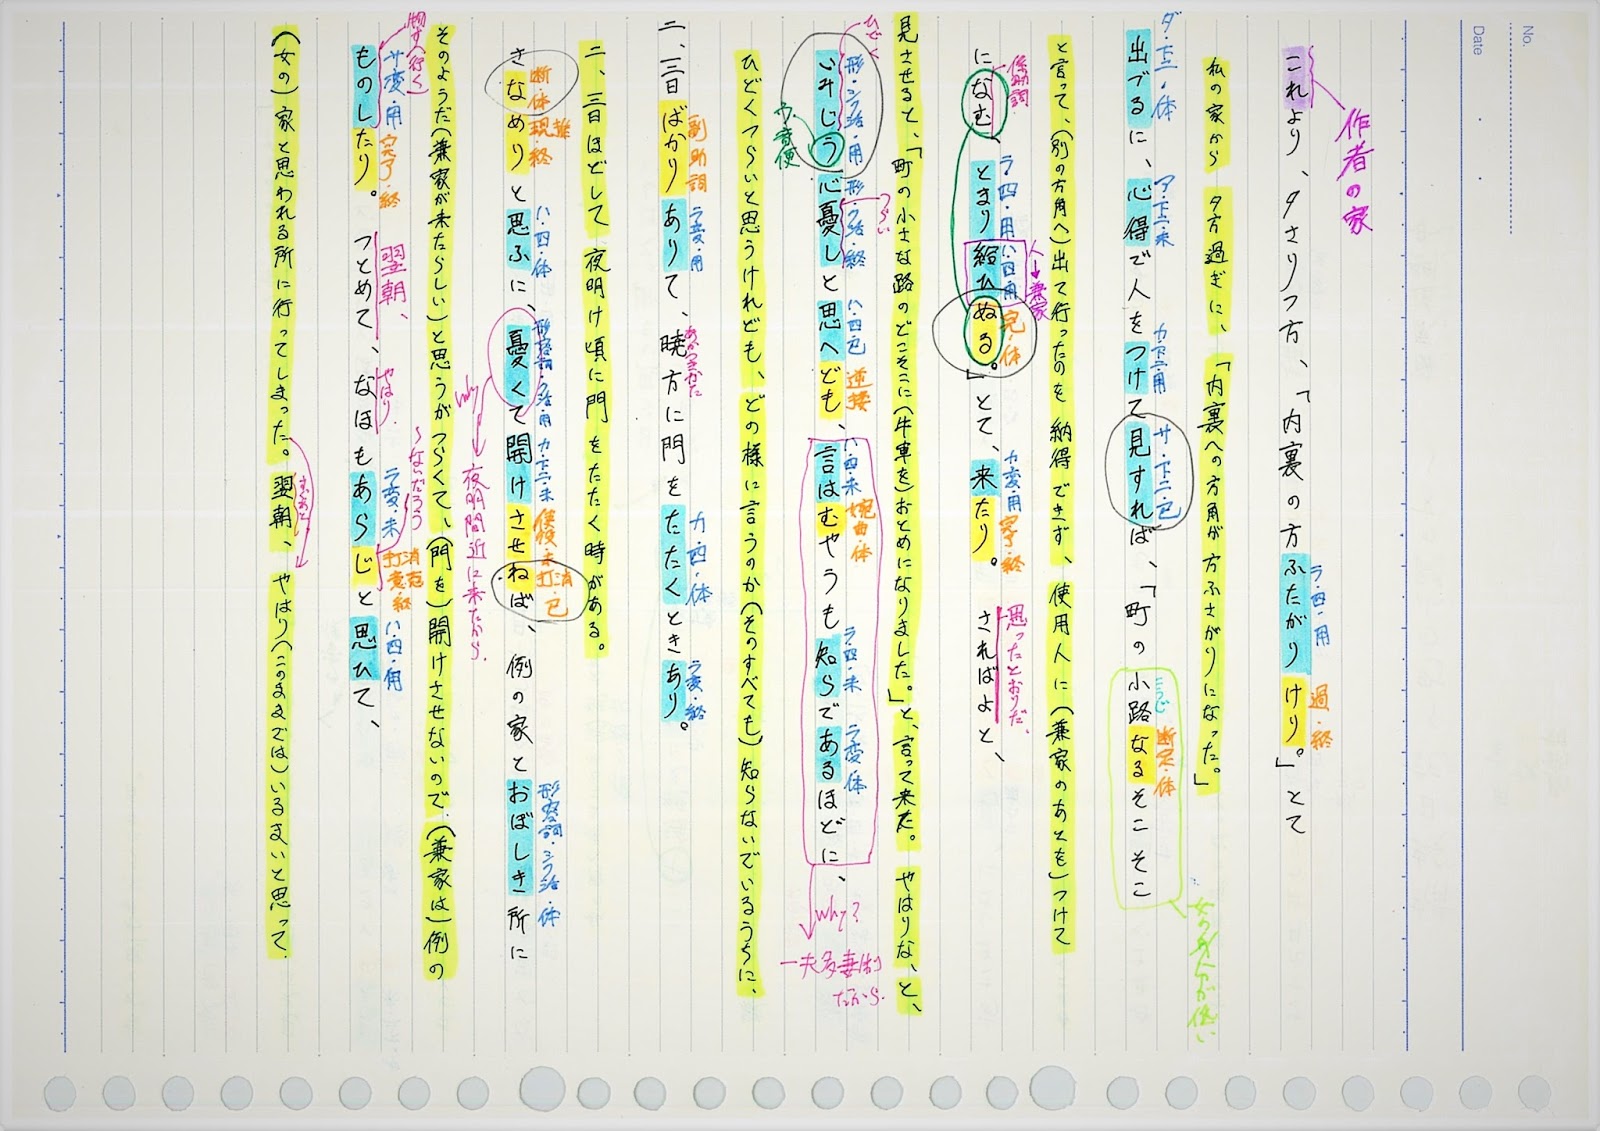 No.
Date
作者の家
これより、夕さりつ方、「内裏の方ふたがりけり。」とて
ラ・四・用
過・終
私の家から 夕方過ぎに、「内裏への方角が方ふさがりになった。」
ダ・下二・体
ア・下二・未
カ下二用
サ・下二・已
こうじ
断定・体
出づるに、心得で人をつけて見すれば、「町の小路なるそこそこ
女の身分が低い
と言って、(別の方角へ)出て行ったのを 納得できず、使用人に(兼家のあとを)つけて
係助詞
ラ・四・用
ハ四用
人→兼家
完・体
カ変・用
完了・終
思ったとおりだ。
になむ、とまり給ひぬる。」とて、来たり。さればよと、
見させると、「町の小さな路のどこそこに(牛車を)おとめになりました。」と、言って来た。やはりな、と、
ひどく
形・シク活・用
形・ク活・終
つらい
ハ・四・已
逆接
ハ・四・未
婉曲・体
ラ・四・未
ラ変・体
いみじう心憂しと思へども、言はむやうも知らであるほどに、
ウ音便
why?
一夫多妻制だから。
ひどくつらいと思うけれども、どの様に言うのか(そのすべても)知らないでいるうちに、
副助詞
ラ変・用
あかつきかた
カ・四・体
ラ変・終
二、三日ばかりありて、暁方に門をたたくときあり。
二、三日ほどして 夜明け頃に門をたたく時がある。
断・体
推現・終
ハ・四・体
形容詞・ク活・用
カ・下二・未
使役・未
打消・已
形容詞・シク活・体
さなめりと思ふに、憂くて開けさせねば、例の家とおぼしき所に
why
夜明間近に来たから。
そのようだ(兼家が来たらしい)と思うがつらくて、(門を)開けさせないので、(兼家は)例の
サ変・用
完了・終
翌朝、
やはり
〜ないだろう
ラ変・未
打消意・終
ハ・四・用
ものしたり。つとめて、なほもあらじと思ひて、
(女の)家と思われる所に行ってしまった。翌朝、やはり(このままでは)いるまいと思って、